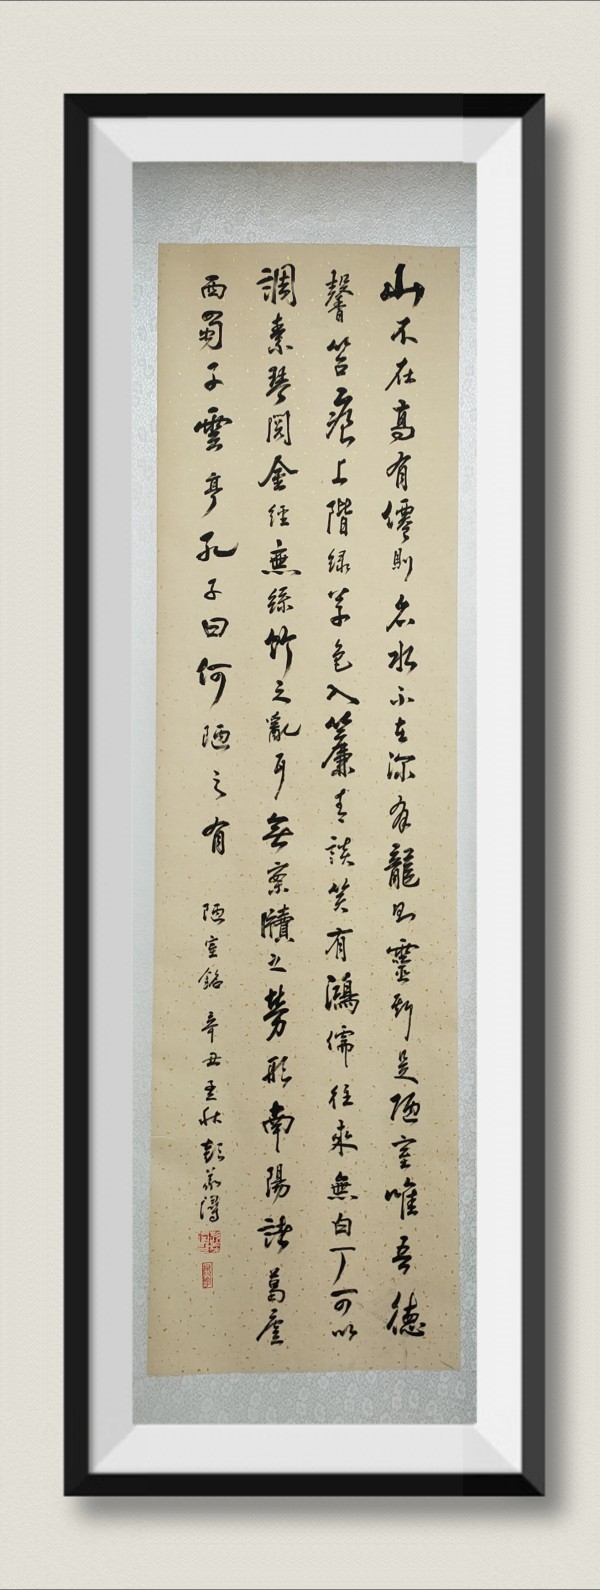 山不在高有僊則名水不在深有龍則靈斯是陋室唯吾德
馨苔痕上階綠草色入簾青談笑有鴻儒往來無白丁可以
調素琴閱金經無絲竹之亂耳無案牘之勞形南陽諸葛廬
西蜀子雲亭孔子曰何陋之有 陋室銘 辛丑孟秋彭